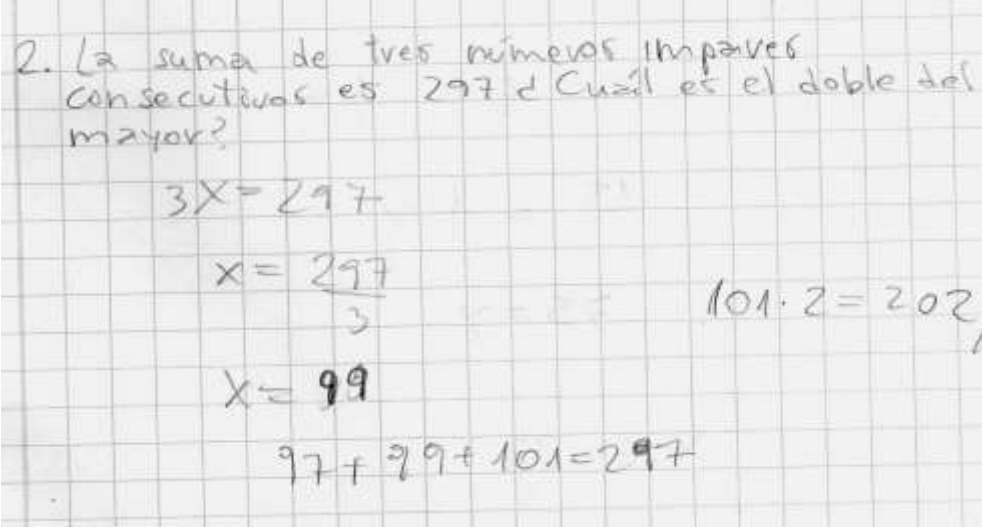 2. La suma de tres números impares
consecutivos es 297 ¿Cuál es el doble del
mayor?
3X = 297
x = 297
3
101. 2 = 202
X = 99
97 + 99 + 101 = 297